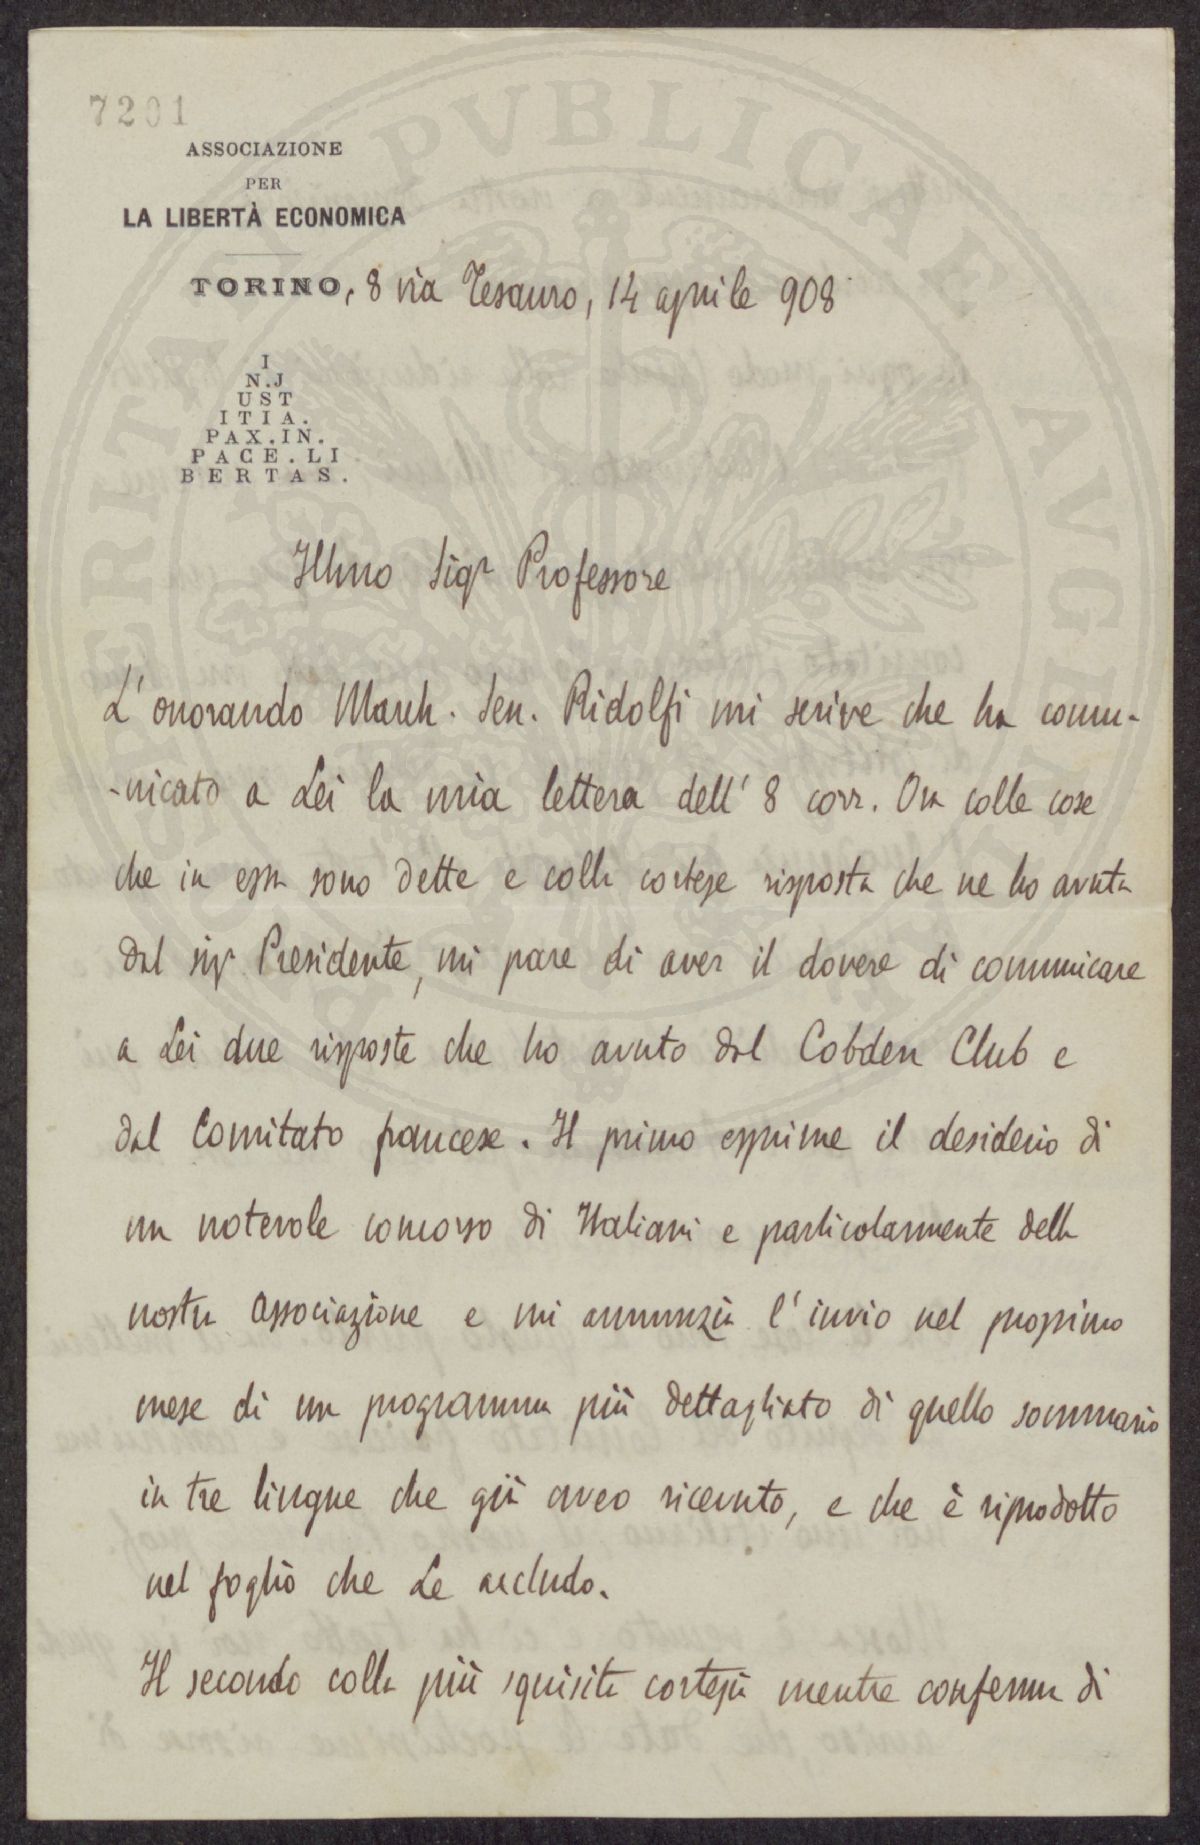 7201
ASSOCIAZIONE
PER
LA LIBERTÀ ECONOMICA
TORINO, 8 via Tesauro, 14 aprile 908
I
N.J
UST
ITIA.
PAX.IN.
PACE.LI
BERTAS.
Illmo Sigr Professore
L'onorando March. Sen. Ridolfi mi scrive che ha comu-
-nicato a Lei la mia lettera dell'8 corr. Ora colle cose
che in essa sono dette e colla cortese risposta che ne ho avuta
dal sigr Presidente, mi pare di aver il dovere di comunicare
a Lei due risposte che ho avuto dal Cobden Club e
dal Comitato francese. Il primo esprime il desiderio di
un notevole concorso di Italiani e particolarmente della
nostra associazione e mi annunzia l'invio nel prossimo
mese di un programma più dettagliato di quello sommario
in tre lingue che già aveo ricevuto, e che è riprodotto
nel foglio che Le accludo.
Il secondo colla più squisita cortesia mentre conferma di
PVBLICAE AVGE